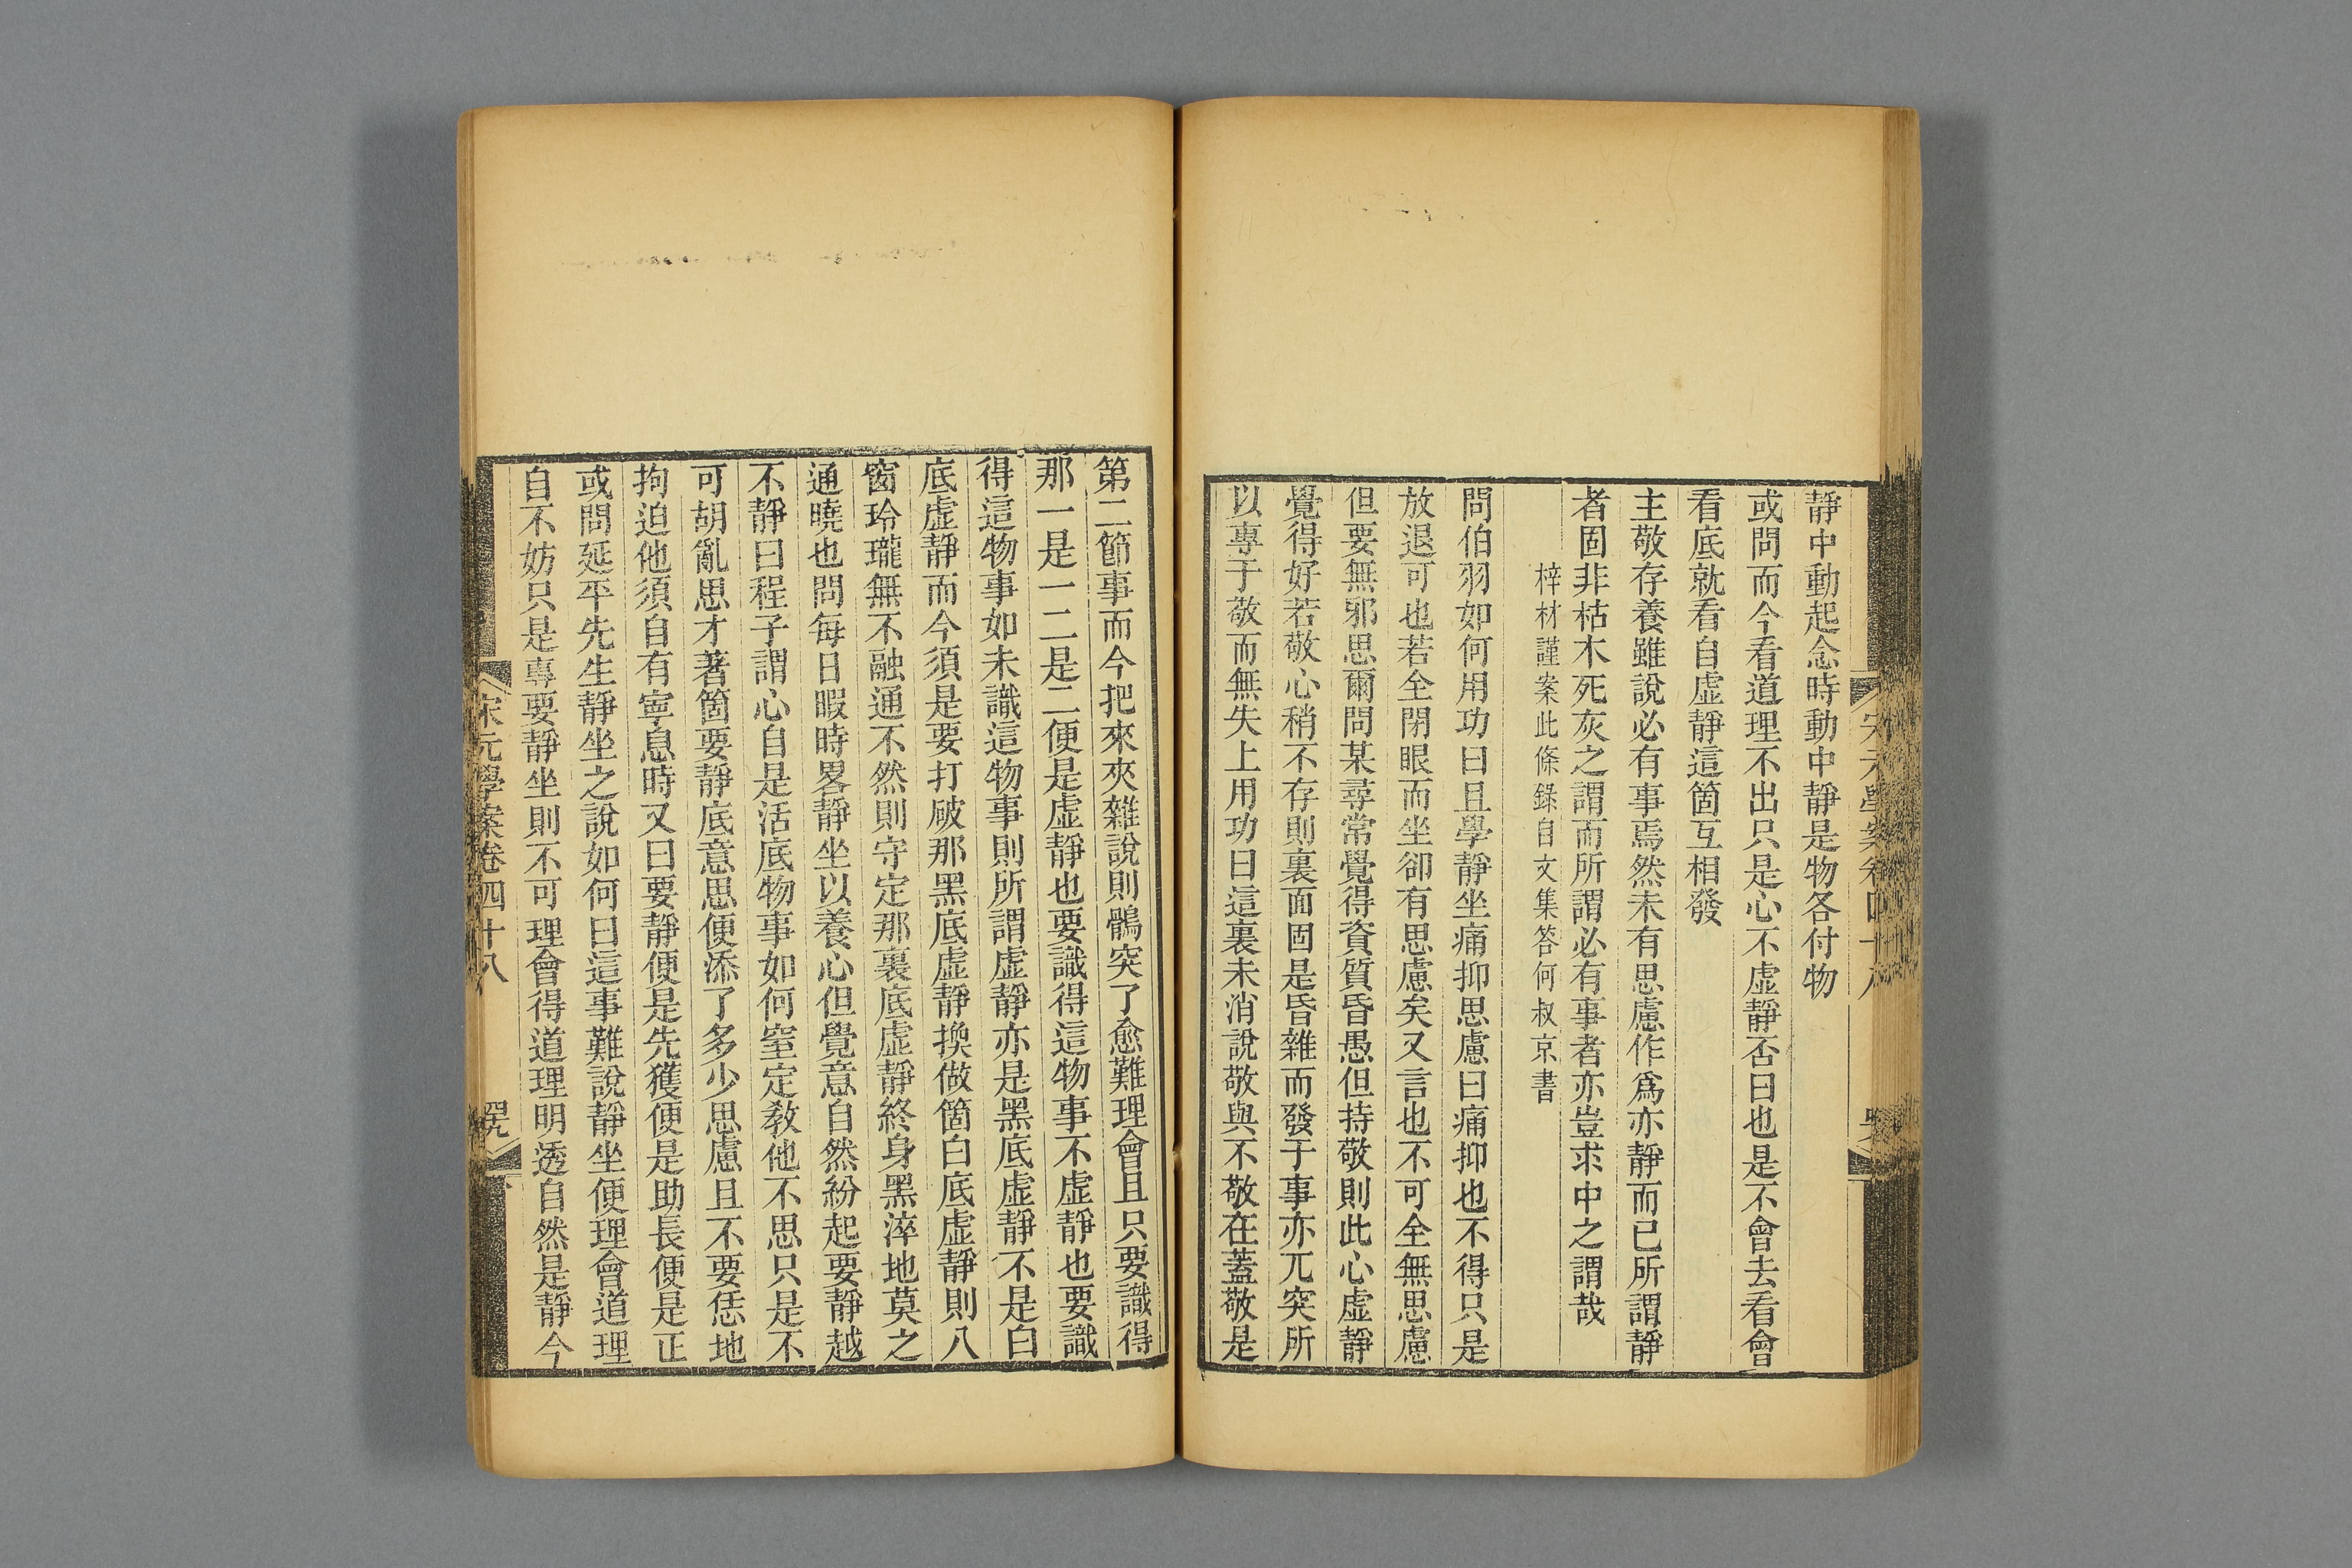 靜中動起念時動中靜是物各付物
或問而今看道理不出只是心不虛靜否曰也是不曾去看會
看底就看自虛靜這箇互相發
主敬存養雖說必有事焉然未有思慮作爲亦靜而已所謂靜
者固非枯木死灰之謂而所謂必有事者亦豈求中之謂哉
梓材謹案此條錄自文集答何叔京書
問伯羽如何用功曰且學靜坐痛抑思慮曰痛抑也不得只是
放退可也若全閉眼而坐卻有思慮矣又言也不可全無思慮
但要無邪思爾問某尋常覺得資質昏愚但持敬則此心虛靜
覺得好若敬心稍不存則裏面固是昏雜而發于事亦兀突所
以專于敬而無失上用功曰這裏未消說敬與不敬在蓋敬是
第二節事而今把來夾雜說則鶻突了愈難理會且只要識得
那一是一二是二便是虛靜也要識得這物事不虛靜也要識
得這物事如未識這物事則所謂虛靜亦是黑底虛靜不是白
底虛靜而今須是要打破那黑底虛靜換做箇白底虛靜則八
窗玲瓏無不融通不然則守定那裏底虛靜終身黑淬地莫之
通曉也問每日暇時畧靜坐以養心但覺意自然紛起要靜越
不靜曰程子謂心自是活底物事如何窒定教他不思只是不
可胡亂思才著箇要靜底意思便添了多少思慮且不要恁地
拘迫他須自有寧息時又曰要靜便是先獲便是助長便是正
或問延平先生靜坐之說如何曰這事難說靜坐便理會道理
自不妨只是專要靜坐則不可理會得道理明透自然是靜今
宋元學案卷四十八